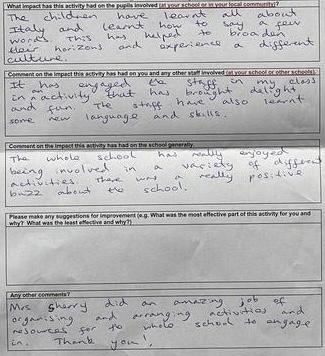 What impact has this activity had on the pupils involved (at your school or in your local community)?
The children have learnt all about
Italy and learnt how to say a few
words. This has helped to broaden
their horizons and experience a different
culture.
Comment on the impact this activity has had on you and any other staff involved (at your school or other schools).
It has engaged the staff in my class
in an activity that has brought delight
and fun. The staff have also learnt
some new language and skills.
Comment on the impact this activity has had on the school generally.
The whole school has really enjoyed
being involved in a variety of different
activities. There was a really positive
buzz about the school.
Please make any suggestions for improvement (e.g. What was the most effective part of this activity for you and
why? What was the least effective and why?)
Any other comments?
Mrs Sherry did an amazing job of
organising and arranging activities and
resources for the whole school to engage
in. Thank you!